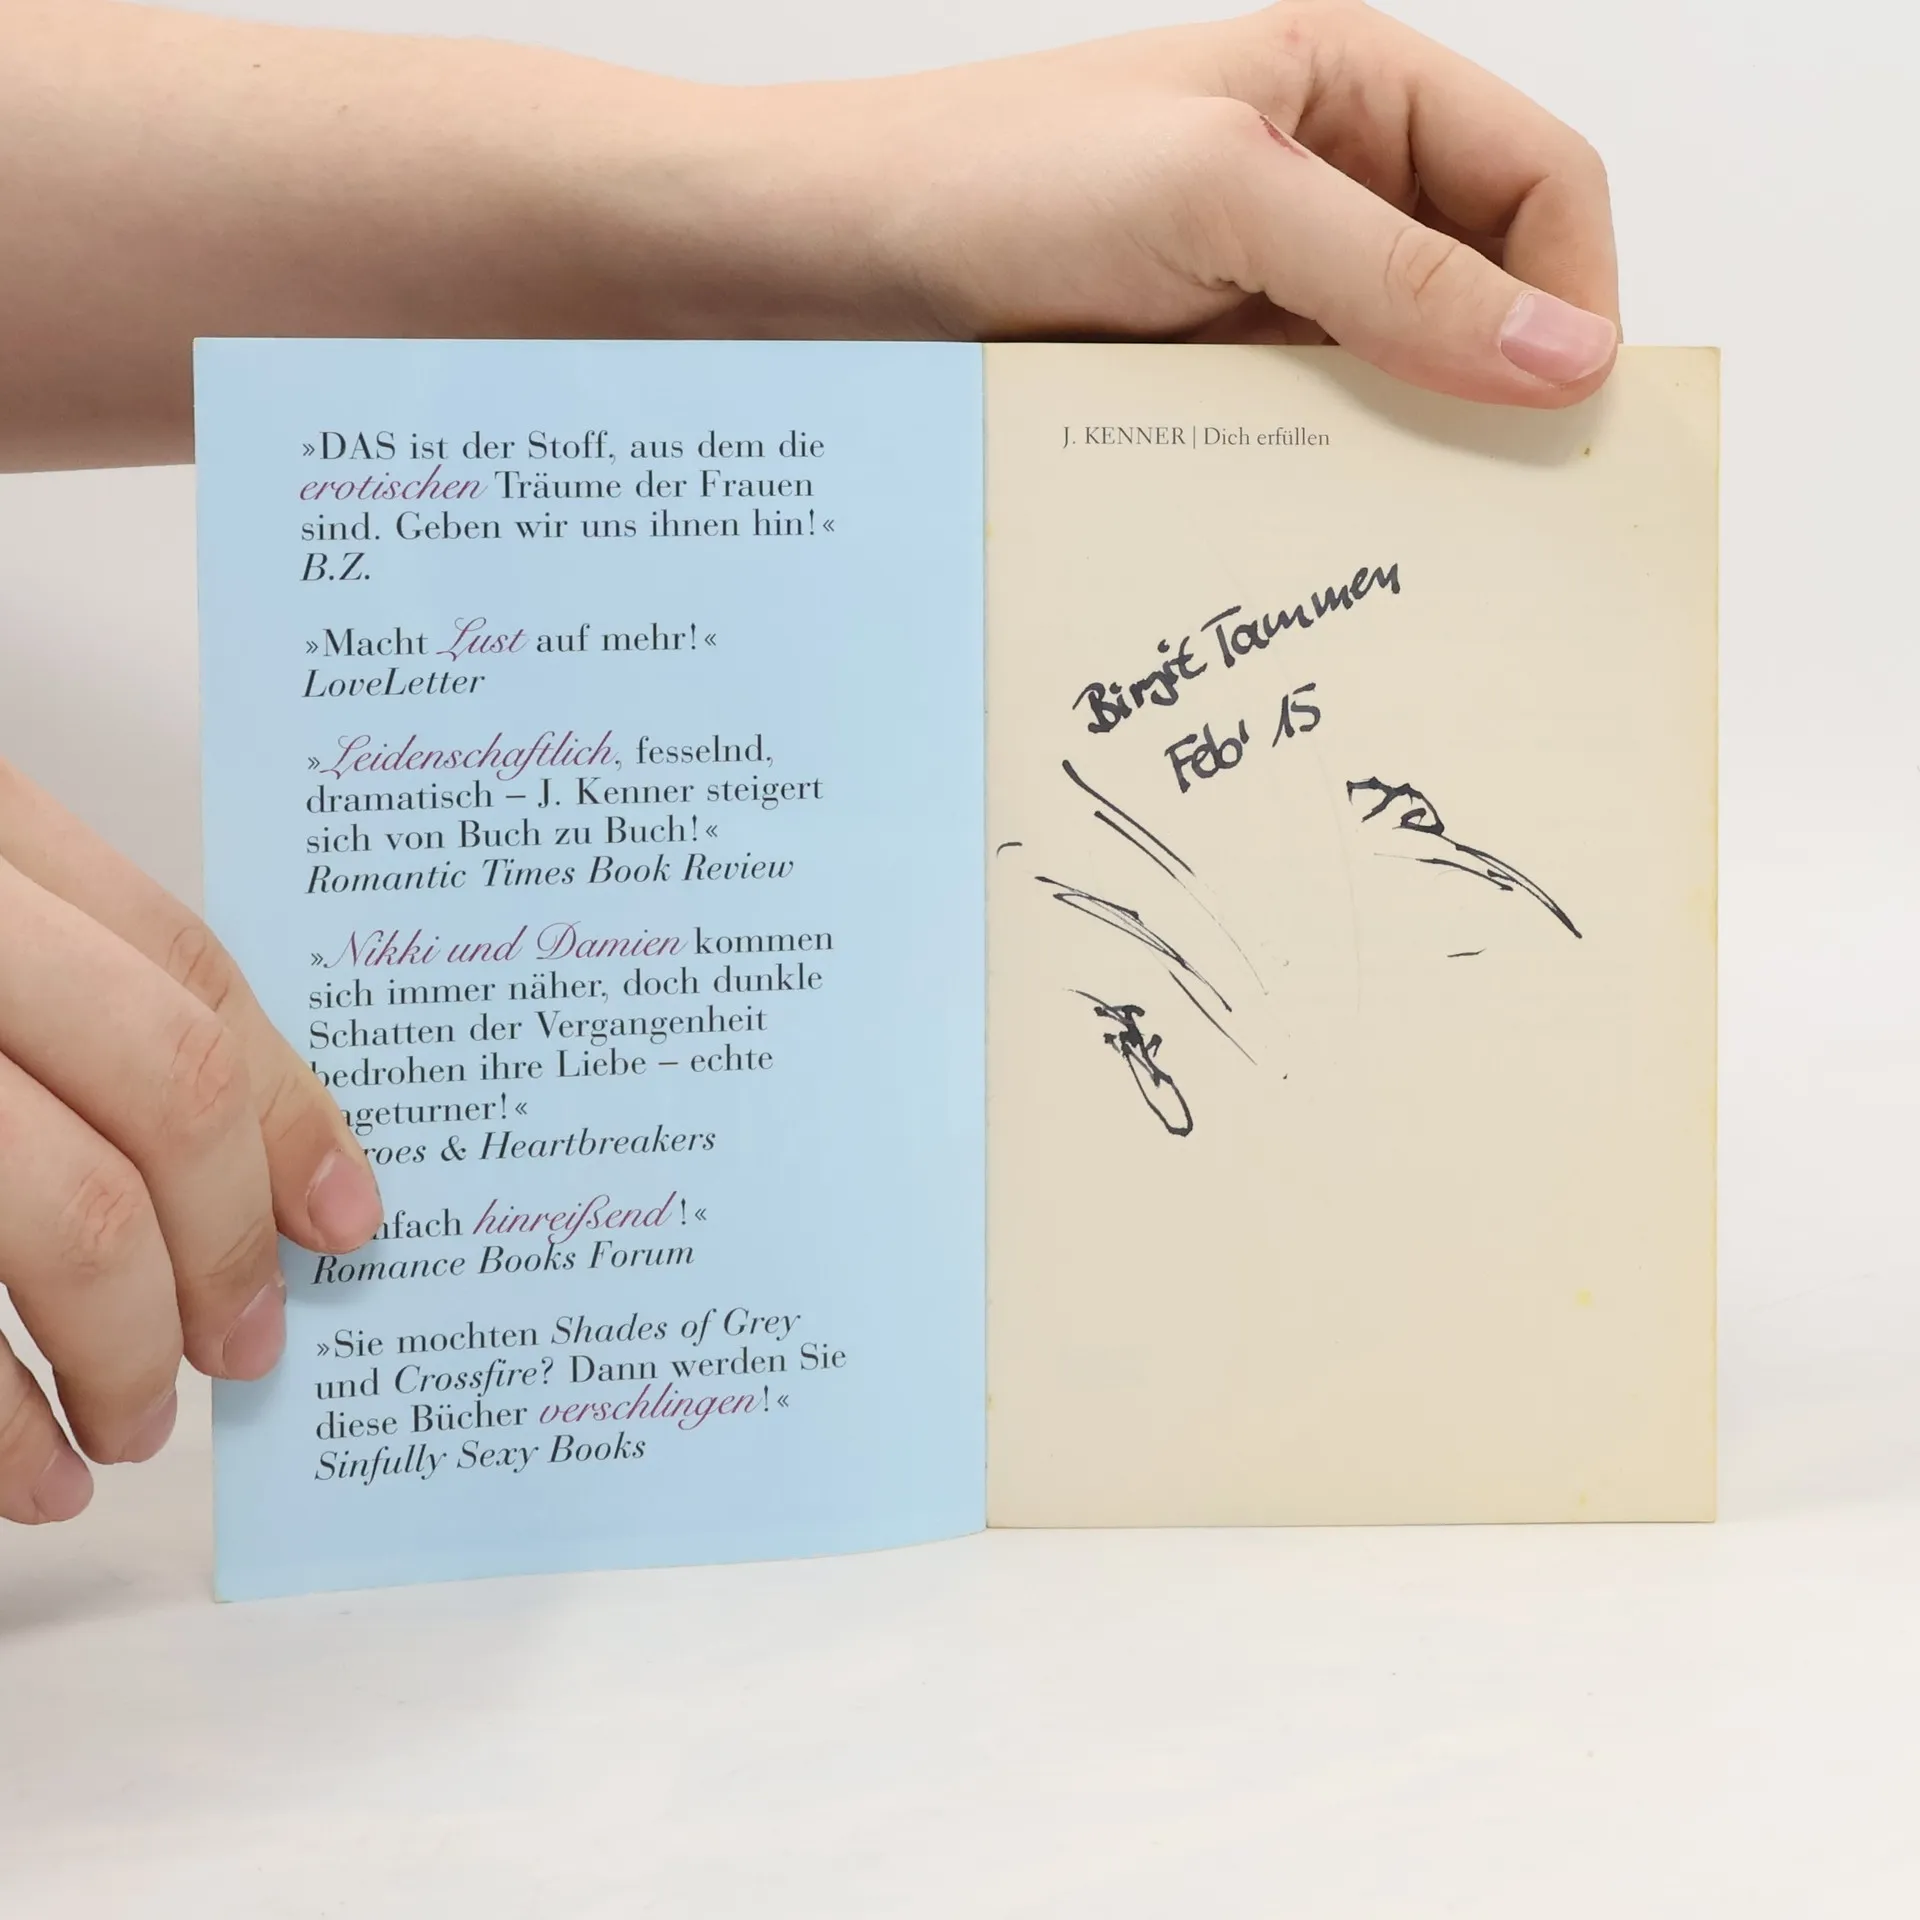 »DAS ist der Stoff, aus dem die
erotischen Träume der Frauen
sind. Geben wir uns ihnen hin!«
B.Z.
»Macht Lust auf mehr!«
LoveLetter
»Leidenschaftlich, fesselnd,
dramatisch – J. Kenner steigert
sich von Buch zu Buch!«
Romantic Times Book Review
»Nikki und Damien kommen
sich immer näher, doch dunkle
Schatten der Vergangenheit
bedrohen ihre Liebe – echte
ageturner!«
roes & Heartbreakers
nfach hinreißend!«
Romance Books Forum
»Sie mochten Shades of Grey
und Crossfire? Dann werden Sie
diese Bücher verschlingen!«
Sinfully Sexy Books
J. KENNER | Dich erfüllen
Birgit Tammen
Febr 15